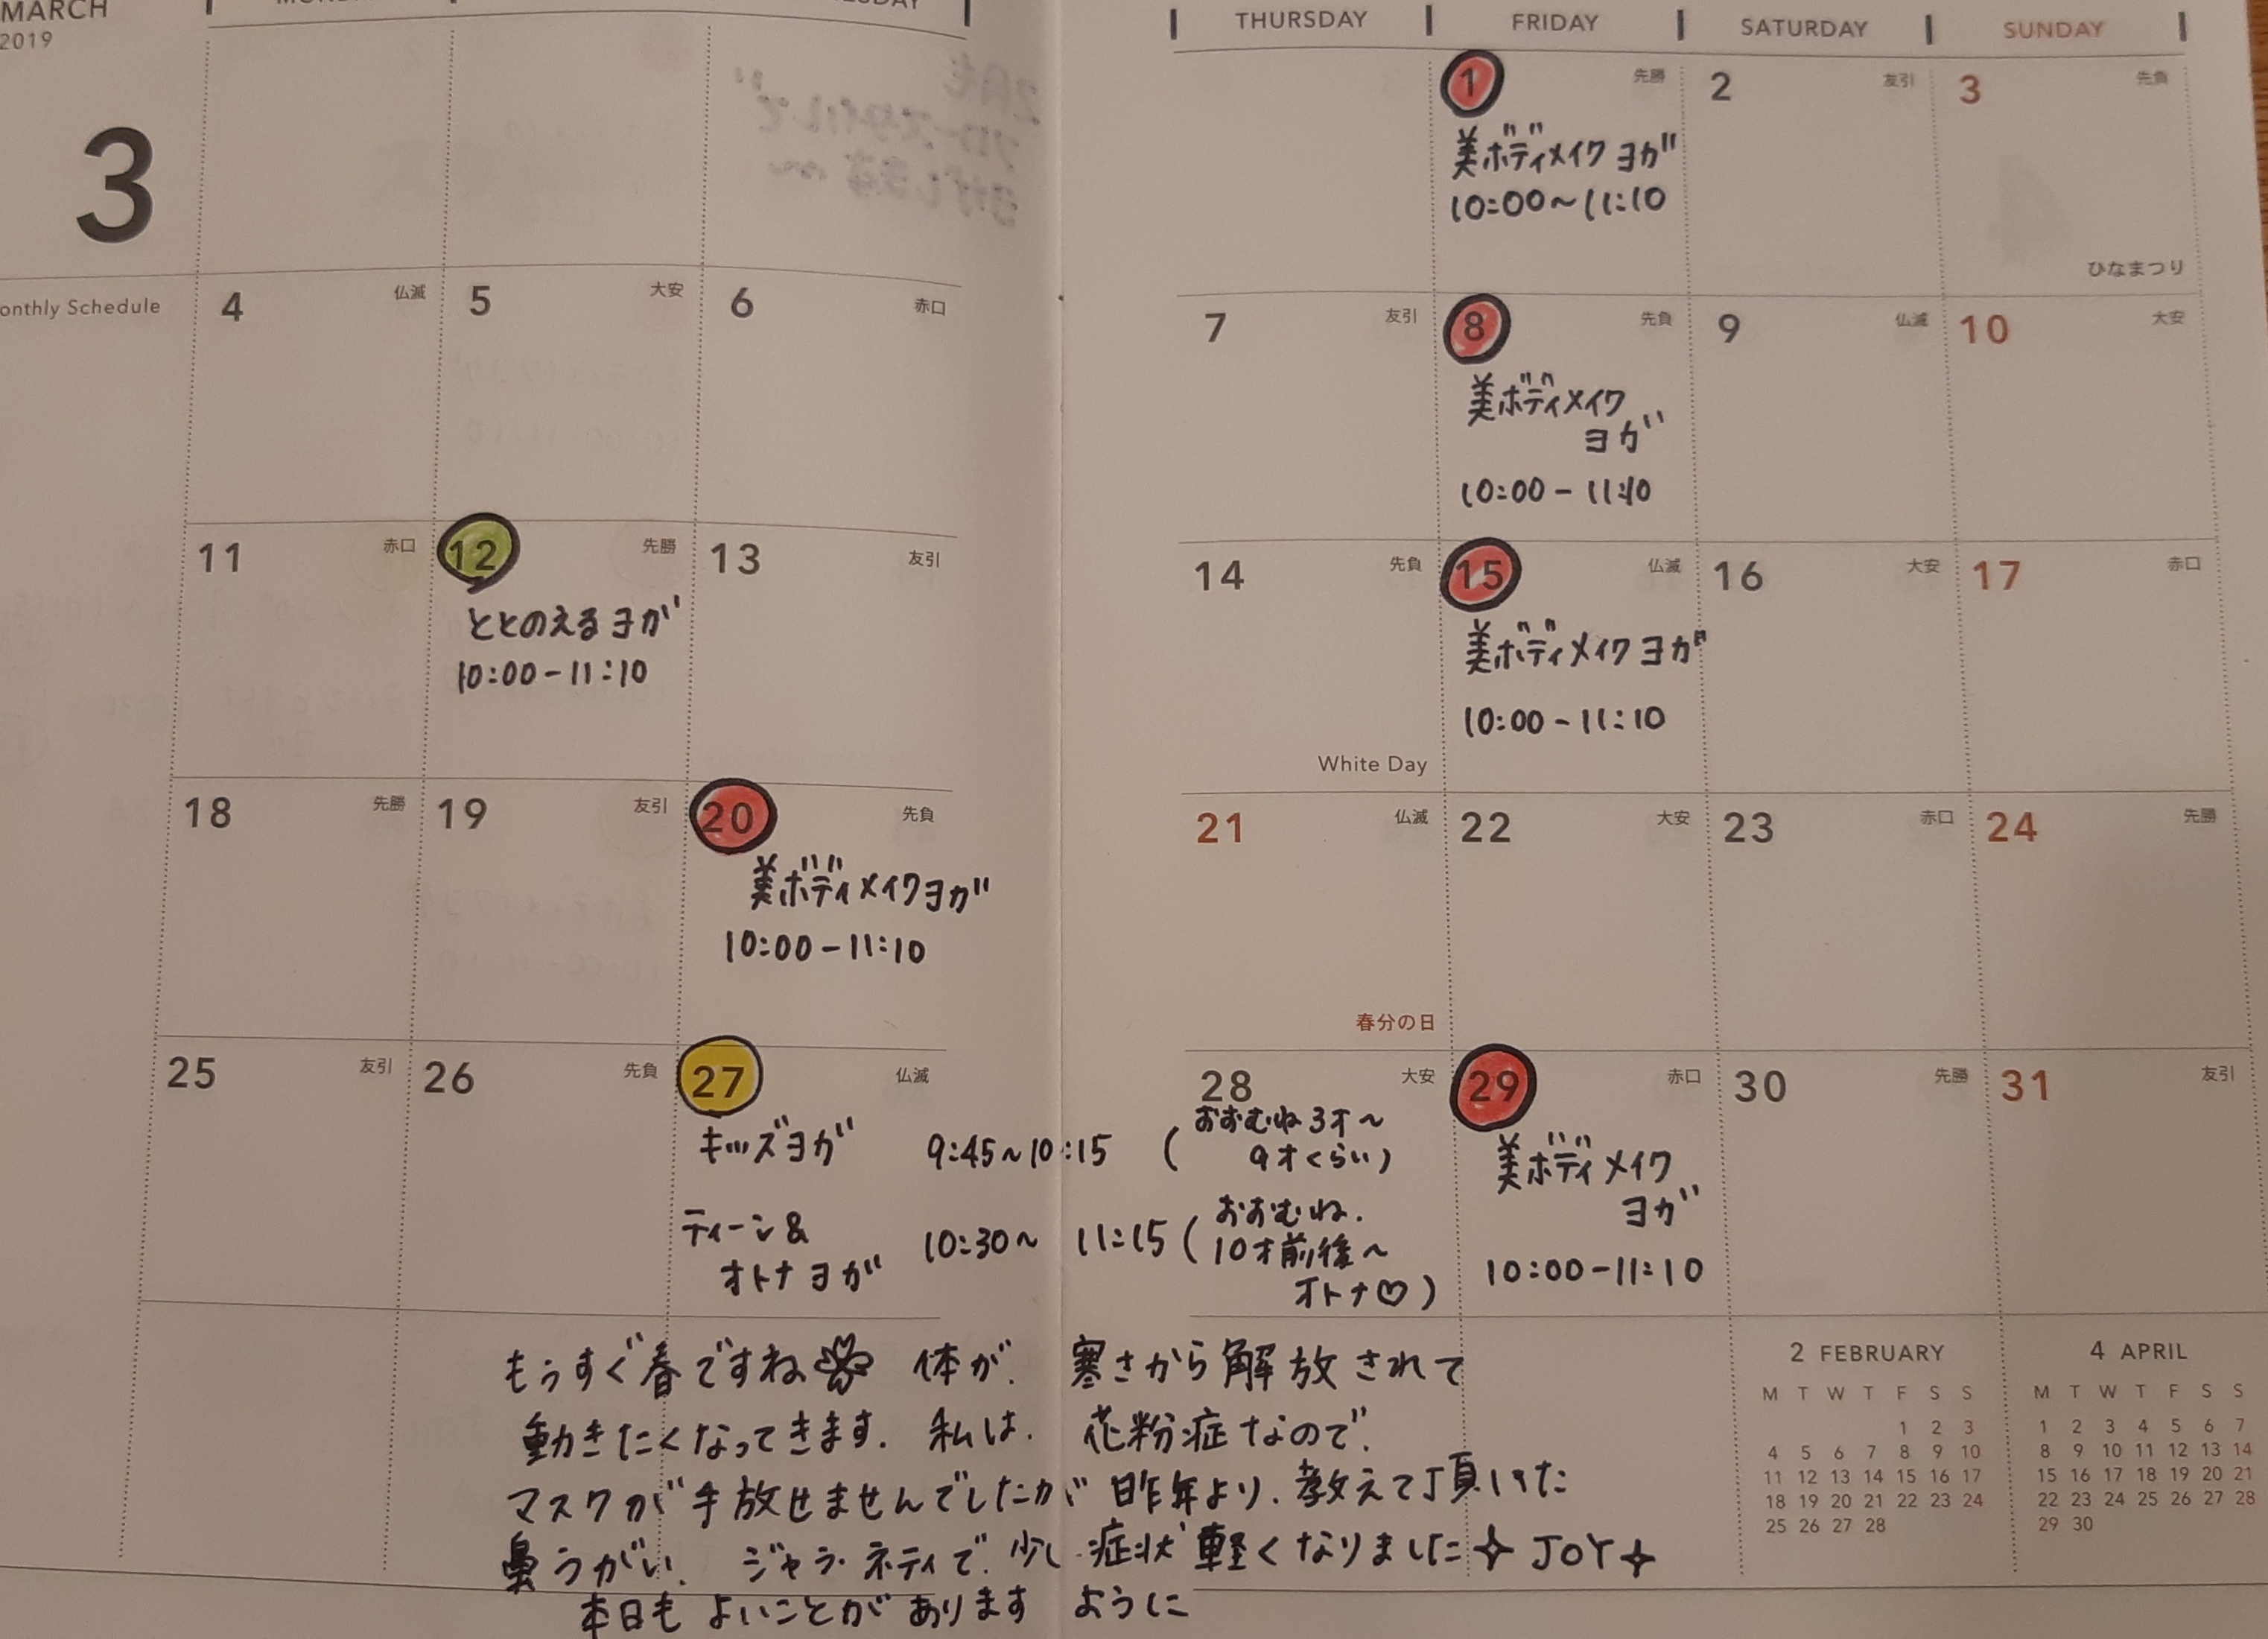 MARCH
2019
THURSDAY
FRIDAY
SATURDAY
SUNDAY
3
1 先勝
美ボディメイクヨガ
10:00〜11:10
2 友引
3 先負
ひなまつり
onthly Schedule
4 仏滅
5 大安
6 赤口
7 友引
8 先負
美ボディメイク
ヨガ
10:00-11:10
9 仏滅
10 大安
11 赤口
12 先勝
ととのえるヨガ
10:00-11:10
13 友引
14 先負
White Day
15 仏滅
美ボディメイクヨガ
10:00-11:10
16 大安
17 赤口
18 先勝
19 友引
20 先負
美ボディメイクヨガ
10:00-11:10
21 仏滅
春分の日
22 大安
23 赤口
24 先勝
25 友引
26 先負
27 仏滅
キッズヨガ 9:45〜10:15 (おおむね3才〜
9才くらい)
ティーン&
オトナヨガ 10:30〜11:15 (おおむね.
10才前後〜
オトナ♡)
28 大安
29 赤口
美ボディメイク
ヨガ
10:00-11:10
30 先勝
31 友引
もうすぐ春ですね 体が. 寒さから解放されて
動きたくなってきます. 私は. 花粉症なので.
マスクが手放せませんでしたが 昨年より. 教えて頂いた
鼻うがい. ジャラ・ネティで. 少し 症状 軽くなりました✧ JOY✧
本日も よいことが あります ように
2 FEBRUARY
M T W T F S S
1 2 3
4 5 6 7 8 9 10
11 12 13 14 15 16 17
18 19 20 21 22 23 24
25 26 27 28
4 APRIL
M T W T F S S
1 2 3 4 5 6 7
8 9 10 11 12 13 14
15 16 17 18 19 20 21
22 23 24 25 26 27 28
29 30